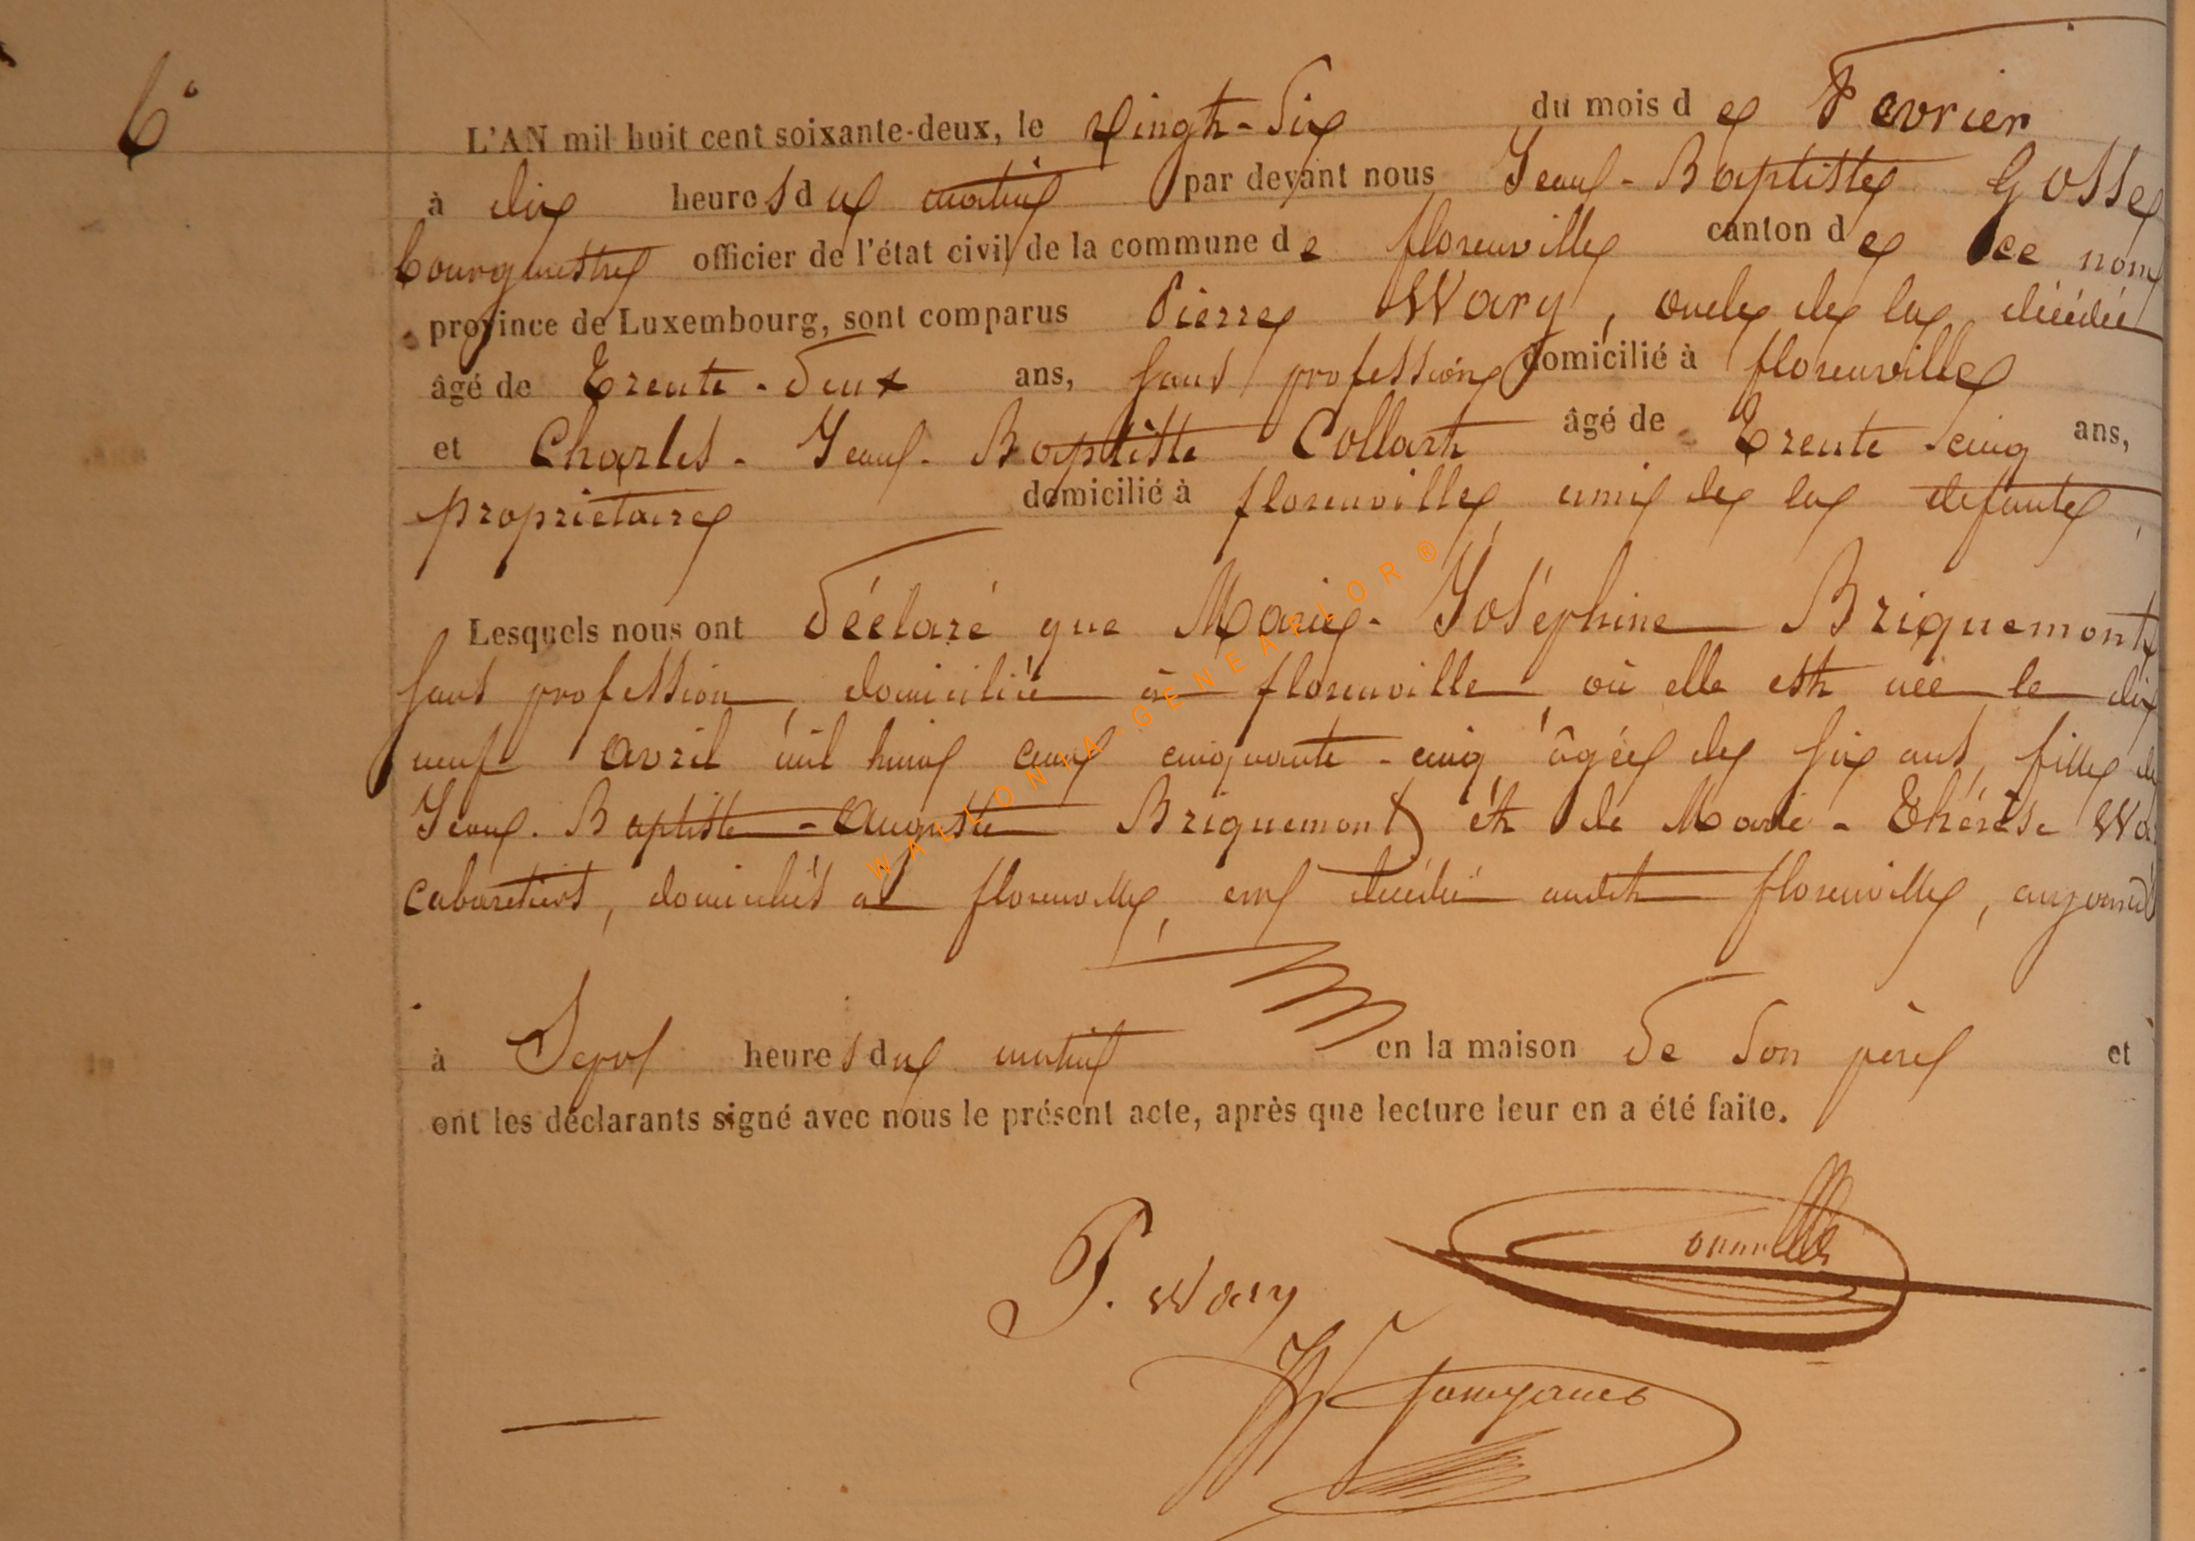 6°
L'AN mil huit cent soixante-deux, le vingt-six du mois de Fevrier
à dix heures du matin par devant nous Jean-Baptiste Gosse
bourgmestre officier de l'état civil de la commune de florenville canton de ce nom
province de Luxembourg, sont comparus Pierre Wary, oncle de la décédée
âgé de Trente-deux ans, sans profession domicilié à florenville
et Charles-Jean-Baptiste Collart âgé de Trente cinq ans,
propriétaire domicilié à florenville, ami de la défunte,
Lesquels nous ont déclaré que Marie-Joséphine Briquemont
sans profession, domiciliée à florenville, où elle est née le dix
neuf avril mil huit cent cinquante-cinq, âgée de six ans, fille de
Jean-Baptiste-Auguste Briquemont et de Marie-Thérèse Wa
cabaretiers, domiciliés à florenville, est décédée audit florenville, aujourd'
à Sept heures du matin en la maison de son père et
ont les déclarants signé avec nous le présent acte, après que lecture leur en a été faite.
P. Wary
WALLONIA-GENEALOR®